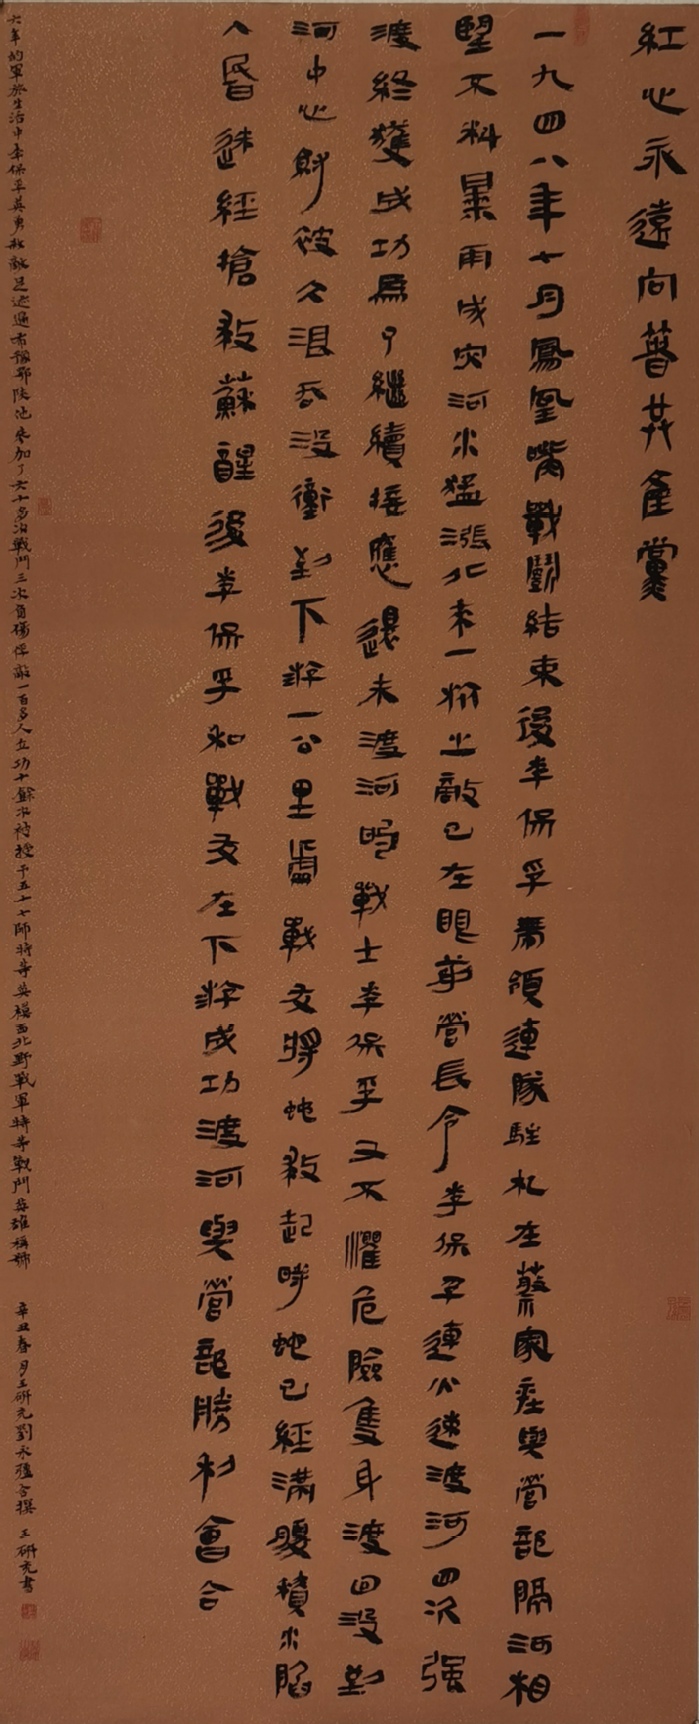 紅心永遠向著共產黨
一九四八年十月鳳凰嘴戰鬭結束後李保孚帶領連隊駐札在蔡家庄與營部隔河相
望不料暴雨成灾河水猛漲北未一枬上敵已在眼前營長令李保孚連火速渡河四次强
渡終獲成功爲了繼續接應還未渡河的戰士李保孚又不懼危險隻身渡回没到
河中心時彼久浪吞没衝到下游一公里處戰友將他救起時他已經滿腹積水陷
入昏迷經搶救蘇醒後李保孚和戰友在下游成功渡河與營部勝利會合
六年的軍旅生活中李保孚英勇殺敵足迹遍布豫鄂陝 參加了六十多次戰鬥三次負傷俘敵一百多人立功十餘次被授予五十七師特等英模西北野戰軍特等戰鬥英雄稱號 辛丑春月王研充劉永 合撰 王研充書